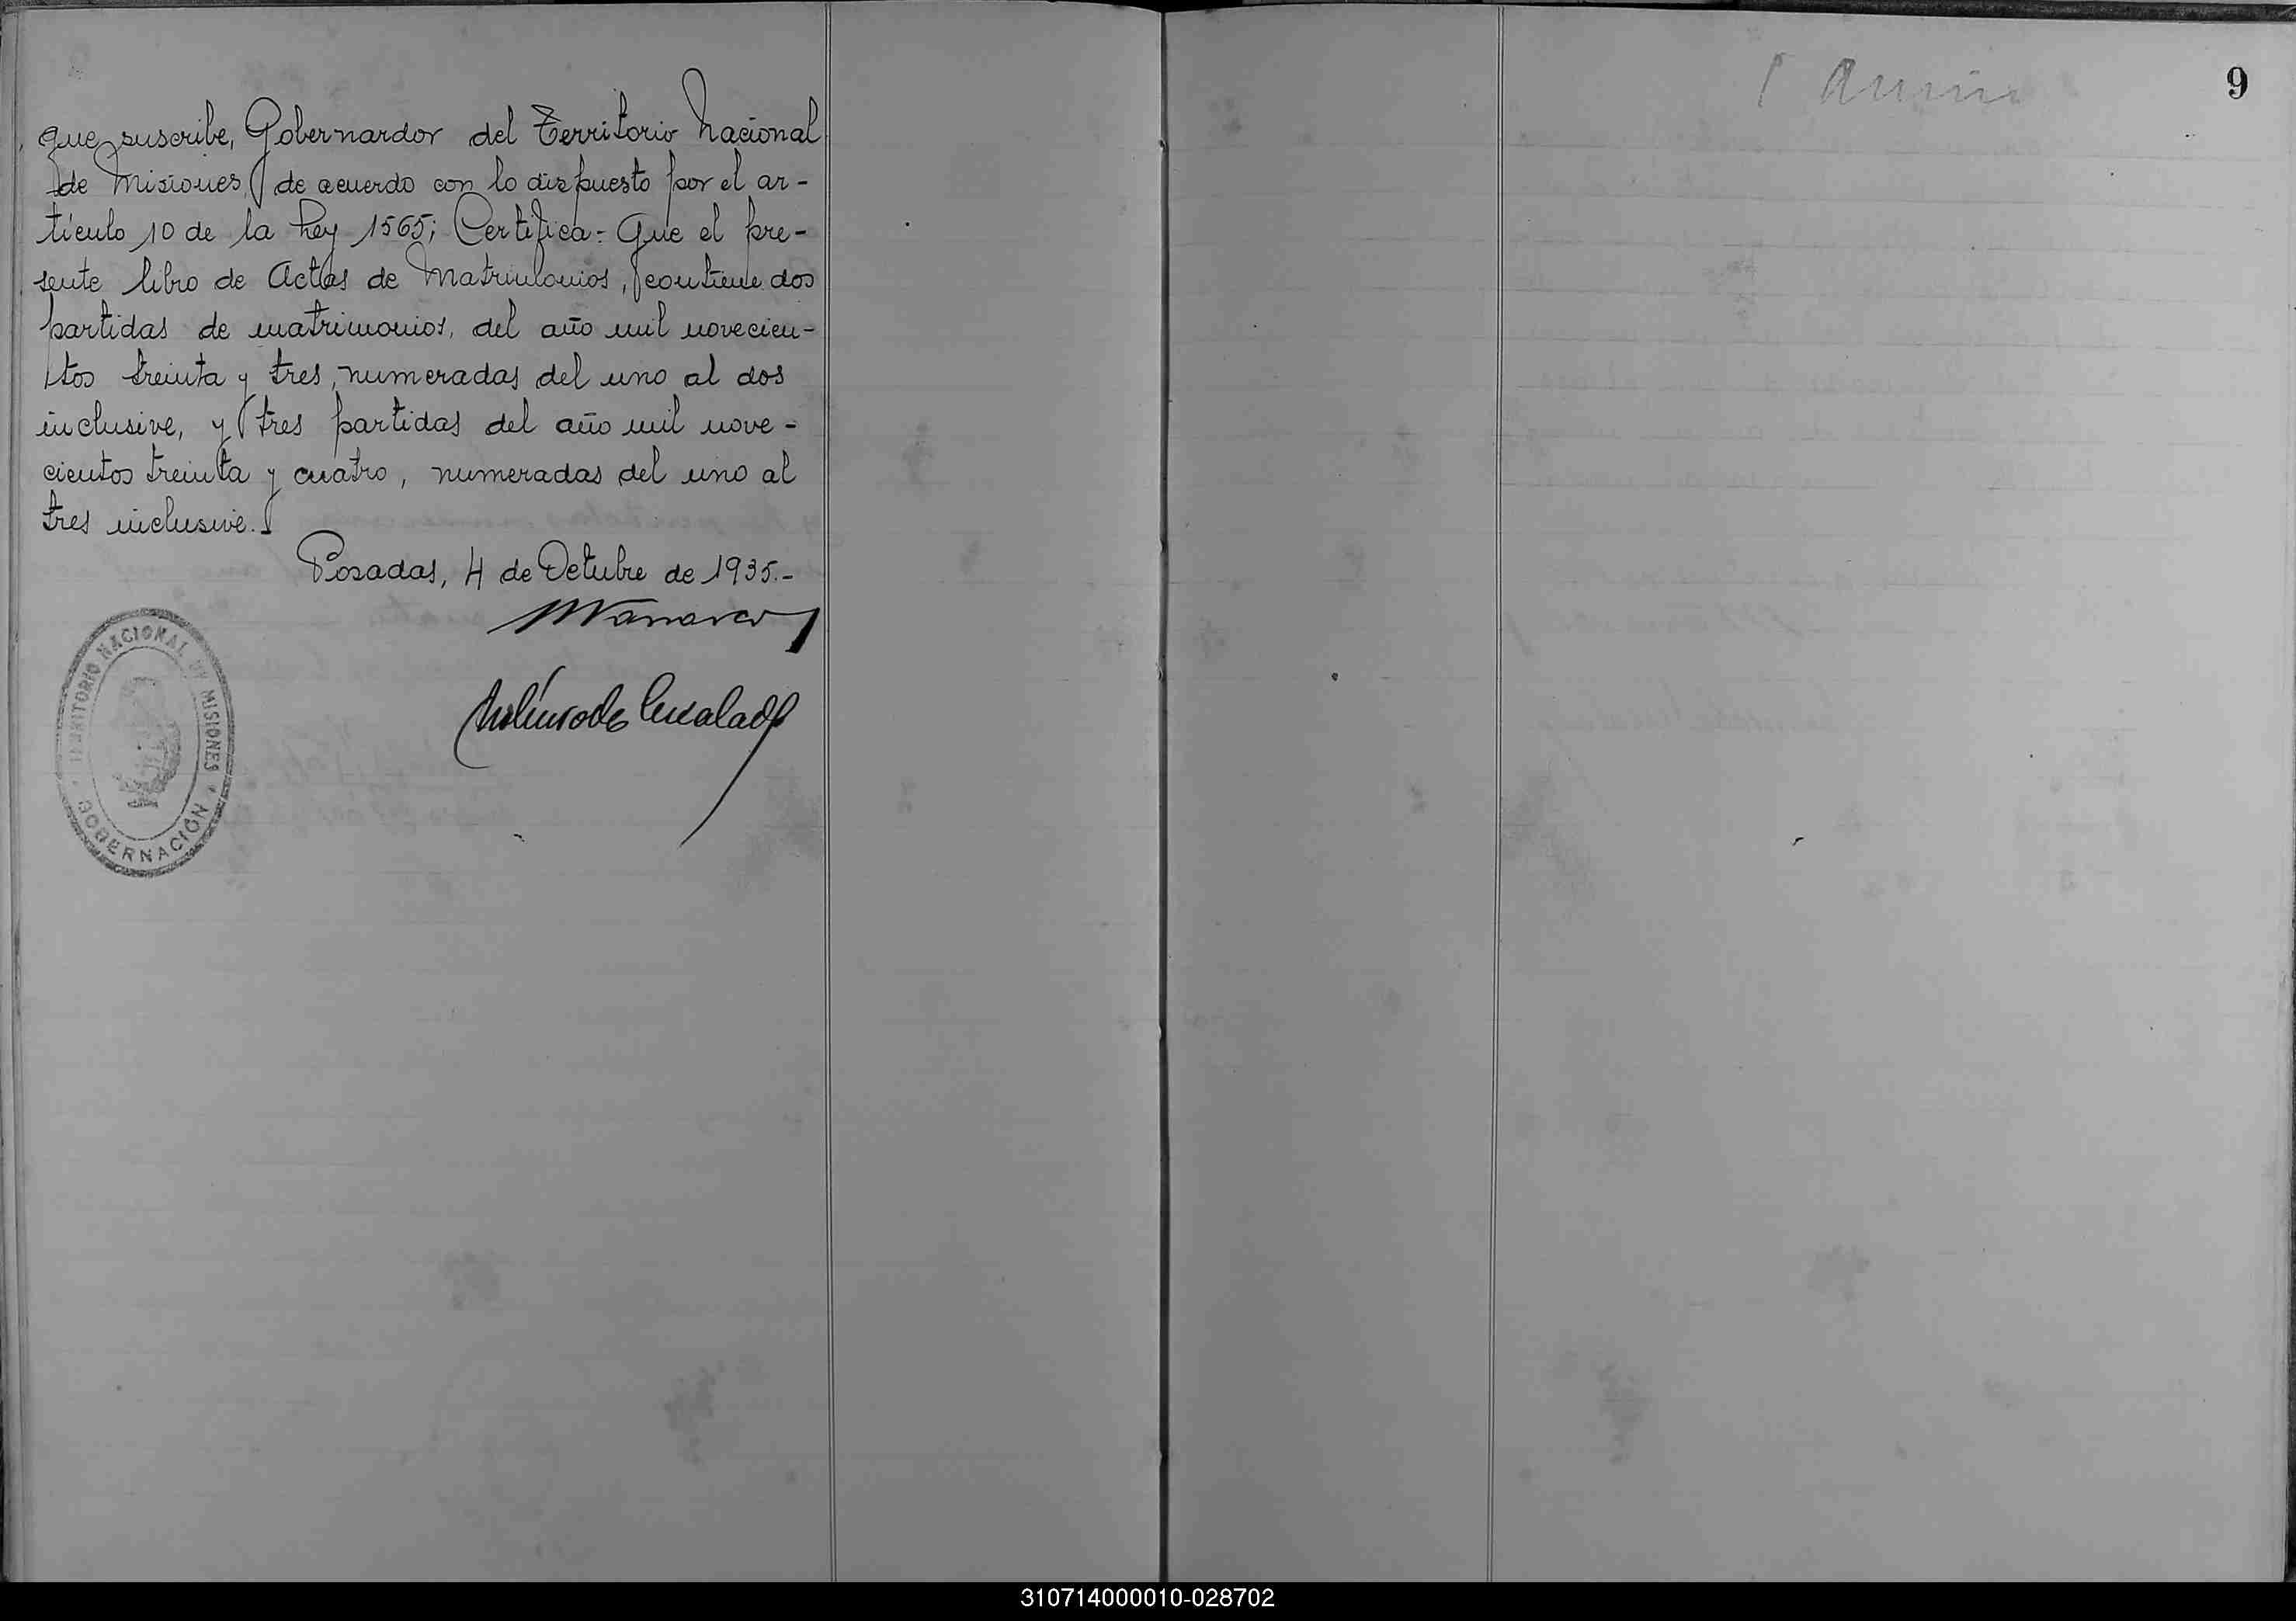 que suscribe, Gobernardor del Territorio Nacional
de Misiones, de acuerdo con lo dispuesto por el ar-
tículo 10 de la Ley 1565; Certifica:- Que el pre-
sente libro de Actas de Matrimonios, contiene dos
partidas de matrimonios, del año mil novecien-
tos treinta y tres, numeradas del uno al dos
inclusive, y tres partidas del año mil nove-
cientos treinta y cuatro, numeradas del uno al
tres inclusive.
Posadas, 4 de Octubre de 1935.-
TERRITORIO NACIONAL DE MISIONES
GOBERNACIÓN
9
310714000010-028702